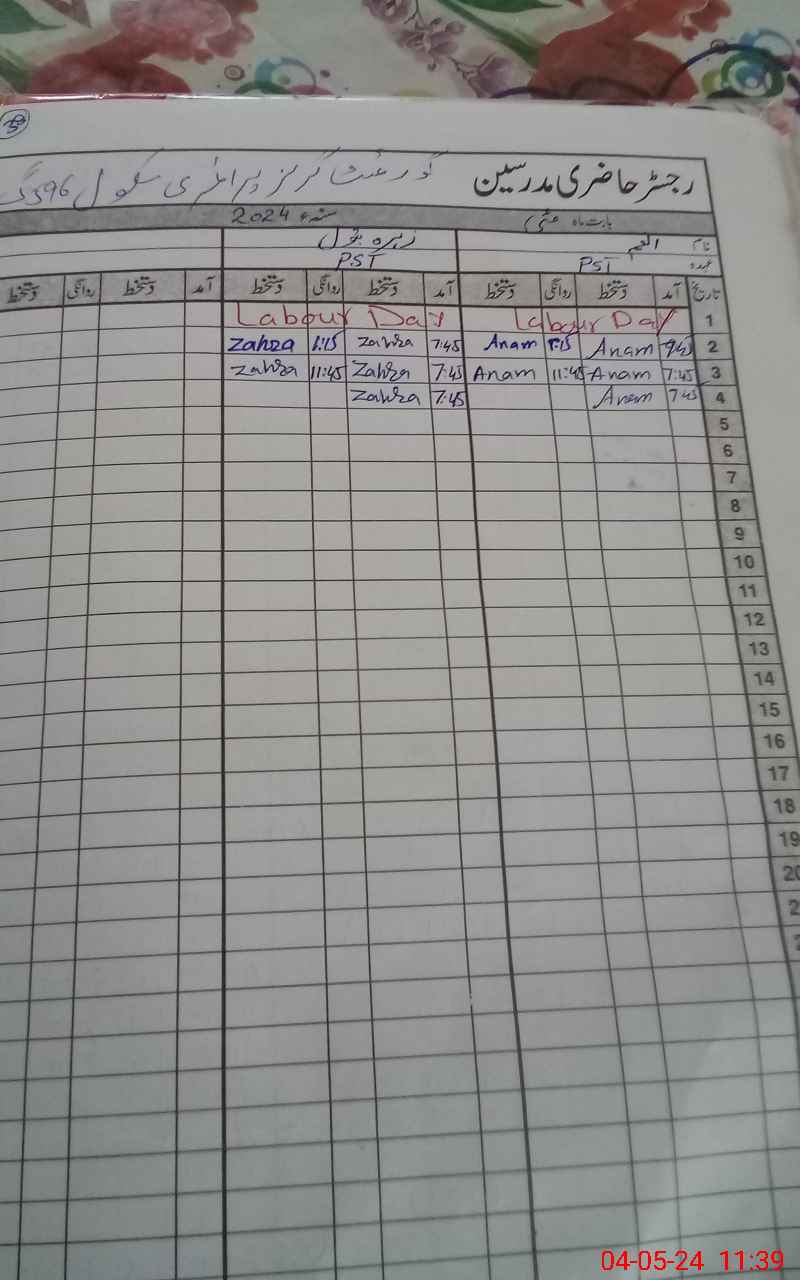 رجسٹر حاضری مدرسین گورنمنٹ گرلز پرائمری سکول 396 گ
بابت ماہ مئی سنہء 2024
نام انعم زہرہ بتول
عہدہ PST PST
تاریخ آمد دستخط روانگی دستخط آمد دستخط روانگی دستخط آمد دستخط روانگی دستخط
1 Labour Day Labour Day
2 7:45 Anam 1:15 Anam 7:45 Zahra 1:15 Zahra
3 7:45 Anam 11:45 Anam 7:45 Zahra 11:45 Zahra
4 7:45 Anam 7:45 Zahra
5
6
7
8
9
10
11
12
13
14
15
16
17
18
19
04-05-24 11:39